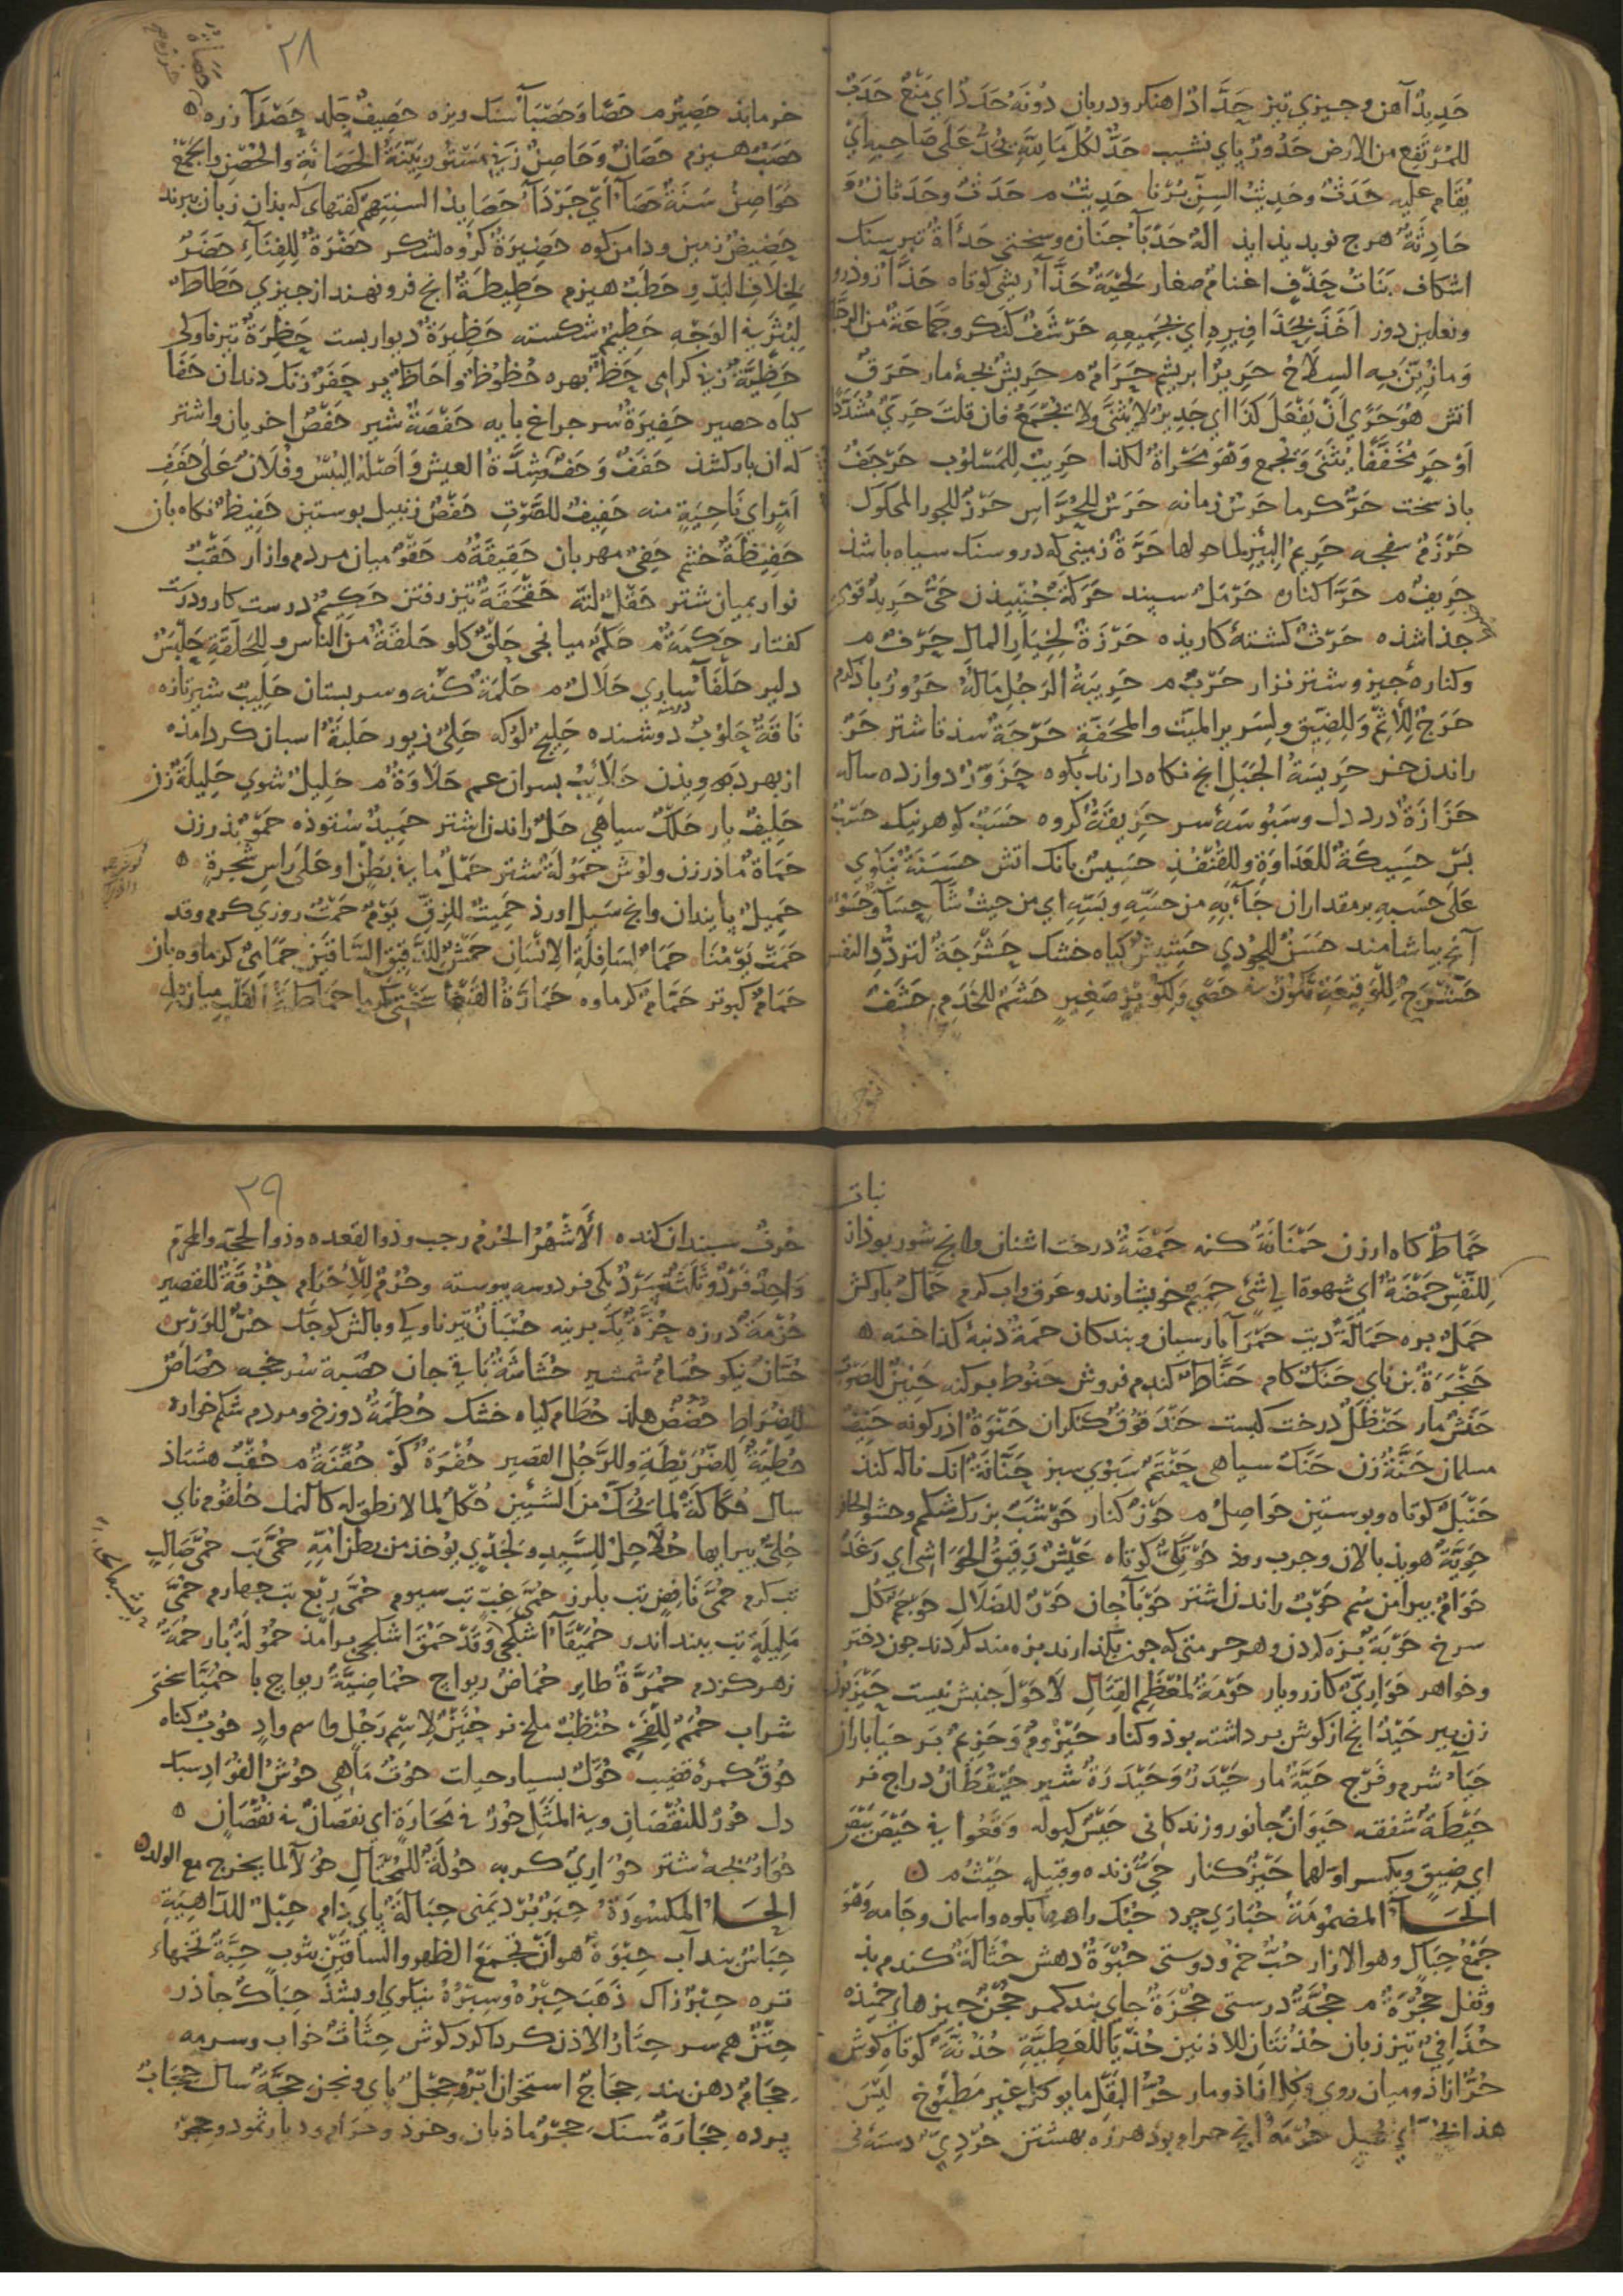 حَدِيدٌ آهن و جيزي تيز حَدَّادٌ اهنكر و دربان دُونَهُ حَدَدٌ اي مَنْعٌ حَدَبٌ
للمُرْتَفِع من الارض حَدُورٌ پاي نشيب حَدٌّ لكُلّ مَا
يُقَام عليه حَدَثٌ وحَدِيثُ السِنّ بُرْنا حَدِيثٌ م حَدَثٌ وحَدَثَانٌ وَ
حَادِثَةٌ هرج نو بديد ايد حَدْبَآءُ جنازه و سختي حَدَأَةٌ تبر سنك
اشكاف بَنَاتُ حَذَفٍ اغنامٌ صغار لِحْيَةٌ حَذَّآءُ ريش كوتاه
ونعلين دوز اَخَذَ بِحَذَافِيرِهِ اي بِجَمِيعِهِ حَرْشَفٌ كنكر و جَمَاعَةٌ من الرجال
وَمازُيِّنَ بِه السِلاحُ حَرِيرٌ ابريشم حَرَامٌ م حَرِيشٌ مار حَرَقٌ
اتش هُوَ حَرًى اَنْ يَفْعَلَ كَذَا اي جَدِيرٌ لا يُثَنَّى ولا يُجْمَعُ فان قلتَ حَرِيٌّ مُشَدَّدًا
اَوْ حَرٍ مُخَفَّفًا يُثَنَّى وَيُجْمَع وَهُوَ مَحْرَاةٌ لكذا حَرِيبٌ لِلمَسْلُوب حَرْجَفٌ
باذ سخت حَرٌّ كرما حَرْسٌ زمانه حَرَسٌ لِلحُرَّاسِ
حَرْزَمٌ سفجه حَرِيمُ البِئْرِ لما حولها حَرَّةٌ زميني كه درو سنك سياه باشذ
حَرِيفٌ م حَرَا كناره حَرْمَلٌ سپند حَرَكَةٌ جُنبيدن حَيٌّ حَرِيدٌ قومي
جذا شذه حَرْثٌ كشته كاريذه حَرْزَةٌ لِخِيَارِ المالِ حَرْفٌ م
وكنارهٔ جيز و شتر نزار حَرْبٌ م حَرِيبَةُ الرَجُلِ مَالُهُ حَرُورٌ باذ كرم
حَرَجٌ لِلْاِثْمِ وَلِلضِيقِ ولِسَرِيرِ الميّت والمحَفّةِ حَرَجَةٌ
راندن خر حَرِيسَةُ الجَبَلِ انج نكاه دارند بكوه حَزَوَّرٌ دوازده ساله
حَزَازَةٌ درد دل و سَبُوسَهٔ سر حَزِيقَةٌ كروه حَسَبٌ كوهر نيك
بَسْ حَسِيكَةٌ للعَدَاوَةِ وللقُنْفُذِ حَسِيسٌ بانك اتش حَسَنَةٌ نيكوي
عَلَى حَسَبِهِ بر مقدار ان جَآءَ بِهِ من حَسِّهِ و بَسِّهِ اي من حيثُ شَآءَ
آنج بياشامند حَسَنٌ حَشِيشٌ كياه خشك حَشْرَجَةٌ لتردّد النفس
حَشْرَجٌ ولِكُوزٍ صَغِيرٍ حَشَمٌ للخَدَمِ حَشَفٌ
٢٨
خرما بَذ حَصِيرٌ م حَصًا وَحَصْبَآءُ سنك ريزه حَصِيفٌ جَلد حَصْدَآءُ زره
حَصَبٌ هيزم حَصَانٌ وَحَاصِنٌ زني مستور بَيِّنَةُ الحَصَانَةِ والحُصْنِ والجَمْعُ
حَوَاصِنُ سَنَةٌ حَصَّآءُ اَيْ جَرْدَآءُ حَصَايِدُ السنتِهم كفتهاى كه بذان زبان ببرند
حَضِيضٌ زمين و دامن كوه حَضِيرَةٌ كروه لشكر حَضْرَةٌ لِلفِنَآءِ حَضَرٌ
لِخلافِ البَدْوِ حَطَبٌ هيزم حَطِيطَةٌ انج فرو نهند از جيزي حَطَاطٌ
لِبَثْرٍ في الوَجْهِ حَطِيمٌ شكسته حَظِيرَةٌ ديوار بست
حَظِيَّةٌ زني كرامي حَظٌّ بهره حُظُوظٌ و اَحَاظٍ حَفَرٌ زنك دندان حَفَأٌ
كياه حصير حَفِيرَةٌ حَفْصَةٌ شير حَفَضٌ اخريان و اشتر
كه ان بار كشذ حَفَفٌ وَحَفٌّ شِدَّةُ العيش وَاَصْلُهُ اليُبْسُ و فُلَانٌ عَلَى حَفَفِ
اَمْرٍ اي نَاحِيَةٍ منه حَفِيفٌ للصَّوْتِ حَفْصٌ زنبيل بوستين حَفِيظٌ نكاه بان
حَفِيظَةٌ خشم حَفِيٌّ مهربان حَقِيقَةٌ م حَقْوٌ ميان مردم و ازار حَقَبٌ
نوار بميان شتر حَقْلٌ حَقْحَقَةٌ تيز رفتن حَكِيمٌ درست كار و درست
كفتار حِكْمَةٌ م حَكَمٌ ميانجي حَلْقٌ كلو حَلْقَةٌ من الناس و لِلحَلْقَةِ
دلير حَلْفَآءُ حَلَالٌ م حَلَمَةٌ كنه و سر بستان حَلِيبٌ شير تازه
نَاقَةٌ حَلُوبٌ دوشنده حَلِيجٌ حَلْيٌ زيور حَلْبَةٌ اسبان كرد امذه
از بهر حَلَائِبُ بسران عم حَلَاوَةٌ م حَلِيلٌ شوي حَلِيلَةٌ زن
حَلِيفٌ يار حَلَكٌ سياهي حَلٌ راندن اشتر حَمِيدٌ ستوذه حَمْوٌ بذر زن
حَمَاةٌ ماذر زن حَمُولَةٌ شتر حَمْلٌ ما في بَطْنٍ او عَلَى رَاسِ شَجَرةٍ
حَمِيلٌ پايندان وانج سَيل اورذ حَمِيتٌ للزِقّ يَوْمٌ حَمْتٌ روزي كرم و قد
حَمُتَ يَوْمُنَا لسَافِلَةِ الاِنْسَانِ حَمْشٌ لِلدَّقِيقِ السَّاقَيْنِ حَمَّامِيٌّ كرماوه بان
حَمَامٌ كبوتر حَمَّامٌ كرماوه حَمَارَّةُ القَيْظِ حَمَاطَةُ القَلْبِ
نبات
حَمَاطٌ كاه ارزن حَمْنَانَةٌ كنه حَمْضَةٌ درخت اشنان وانج شور بوذ
لِلنَّفْسِ حَمْضَةٌ اي شهوة الي شيء حَمِيمٌ خويشاوند و عرق و اب كرم حَمَّالٌ باركش
حَمَلٌ بره حَمَالَةٌ دِيت حَمْرَآءُ بارسيان و بندكان حَمَةٌ دنبهٔ كذاخته
حَنْجَرَةٌ بن ناي حَنَكٌ كام حَنَّاطٌ كندم فروش حَنُوط حَنِينٌ للصَوْت
حَنَشٌ مار حَنْظَلٌ درخت كبست حَنْوَةٌ اذركونه حَنِيفٌ
مسلمان حَنَّةٌ زن حَنَكٌ سياهي حَنْتَمٌ سبوي سبز حَنَّانَةٌ انك ناله كنذ
حَنْبَلٌ كوتاه و بوستين حَوَاصِلُ م حَوْزٌ كنار حَوْشَبٌ بزرك شكم
حَوِيَّةٌ هويذ بالان و جرب روذ حَوْتَكِيٌّ كوتاه عَيْشٌ رَقِيقُ الحَوَاشي اي رَغَدٌ
حَوَامٌ بيرامن سُم حَوْبٌ راندن اشتر حَوْبَآءُ جان حَوْرٌ للضَلَالِ حَوْجَمٌ كل
سرخ حَوْبَةٌ بزه كردن و هر حرمتي كه جون بكذارند بزه مند كردند جون دختر
وخواهر حَوَارِيٌّ كازر و يار حَوْمَةٌ لمُعْظَمِ القِتَالِ لَا حَوْلَ جنبش نيست حَيْزَبُونٌ
زن پير حَيْدٌ انج از كوش برداشته بوذ و كنار حَيْزُومٌ وَحَزِيمٌ بَر حَيَا باران
حَيَآءٌ شرم و فَرْج حَيَّةٌ مار حَيْدَرٌ وَحَيْدَرَةٌ شير حَيْقُطَانٌ دراج نر
حَيْطَةٌ شفقه حَيَوَانٌ جانور و زندكاني حَيْسٌ وَقَعُوا في حَيْصَ بَيْصَ
اي ضيق ويكسر اولهما حَيِّزٌ كنار حَيٌّ زنده و قبيله حَيْثُ م
الحَــاء المضمُومَةُ حُبَارَى جرد حُبُكٌ راههاء بكوه و اسمان و جامه وَهُوَ
جَمْعُ حِبَالٍ وهو الازار حُبٌّ خم و دوستي حُبْوَةٌ دهش حُثَالَةٌ كندم بذ
وثفل حُجْرَةٌ م حُجَّةٌ درستي حُجْزَةٌ جاي بند كمر حُجَنٌ جيزهاء خميذه
حُذَاقِيٌّ تيز زبان حُذُنَّتَانِ للاُذنين حُذْيَا للعَطِيَّةِ حُذُنَّةٌ كوتاه كوش
حُرٌّ ازاذ و ميان روي و مار حُرُّ البَقْلِ ما يوكل غير مَطْبُوخ لَيْسَ
هذا بِحُرٍّ حُرْمَةٌ انج حرام بوذ حُرْدِيٌّ
٢٩
حُرْفٌ سبندان الْاَشْهُرُ الحُرُمُ رجب وذو القعده وذو الحجه والمحرّم
وَاحِدٌ فَرْدٌ وَثَلَثَةٌ سَرْدٌ يكي فرد و سه بيوسته وحُرُمٌ لِلْاِحْرَامِ حُزُقَّةٌ للقصير
حُزْمَةٌ درزه حُزَّةٌ حُسْبَانٌ تير ناوكي و بالش كوجك حُصٌّ للوَرْسِ
حُسَّانٌ نيكو حُسَامٌ شمشير حُشَاشَةٌ باقي جان حُصْبَةٌ سرخجه حُصَاصٌ
لِلضُرَاطِ حُضُضٌ حُطَامٌ كياه خشك حُطَمَةٌ دوزخ و مردم شكم خواره
وللرَّجُلِ القصير حُفْرَةٌ كَوْ حُقْنَةٌ م حُقْبٌ هشتاذ
سال حُكَاكَةٌ لما يُحَكُّ من الشَيْئِينِ حُكْلٌ لما لا نطق له كالنمل حُلْقُوم ناي
حُلِيٌّ حُلَاحِلٌ لِلسَّيِّدِ يوخذ من بطن اُمِّهِ حُمَّى تَب حُمَّى صَالِبٍ
تب كرم حُمَّى نَافِضٍ تب بلرز حُمَّى غِبٍّ تب سيوم حُمَّى رِبْعٍ تب جهارم حُمَّى
مَلِيلَةٍ تب حُمَيْقَآءُ وَقَدْ حَمُقَ حُمُولَةٌ بار حُمَةٌ
زهر كزدم حُمَّرَةٌ طاير حُمَاضٌ ريواج حُمَاضِيَّةٌ ريواج با حُمَيَّا سختي
شراب حُمَمٌ لِلفَحْمِ حُنْظُبٌ ملخ نر حُنَيْنٌ لِاسْمِ رَجُلٍ و اسم وادٍ حُوبٌ كناه
حُوقٌ كمرهٔ قضيب حُوَّلٌ بسيار حيلت حُوتٌ ماهي حُوشُ الفُؤَادِ سبك
دل حُورٌ للنُقْصَانِ وفي المَثَلِ حُورٌ في مَحَارَةٍ اي نقصانٌ في نقصانٍ
حُوَارٌ بجهٔ شتر حُوَّلَةٌ للمُحْتَالِ حُوَلَآءُ لما يخرج مع الولد
الحَــاءُ المكسُورَةُ حِبَرٌ بُرْد يَمَني حِبَالَةٌ پاي دام حِبْلٌ للدَاهِيَةِ
حِبَاسٌ بند آب حِبْوَةٌ هو اَنْ يَجْمَعَ الظهر والساقين بثوبٍ حِبَّةٌ تخمهاء
تره حِبْرٌ زاك ذَهَبَ حِبْرُهُ وسِبْرُهُ نيكوي او بشذ
حِتْنٌ همسر حِتَارُ الاُذن كرداكرد كوش حِثَاثٌ خواب و سرمه
حِجَامٌ دهن بند حِجَاجٌ استخوان ابرو حِجْلٌ حِجَّةٌ سال حِجَابٌ
پرده حِجَارَةٌ سنك حِجْرٌ ماذيان و خرذ و حرام و ديار ثمود